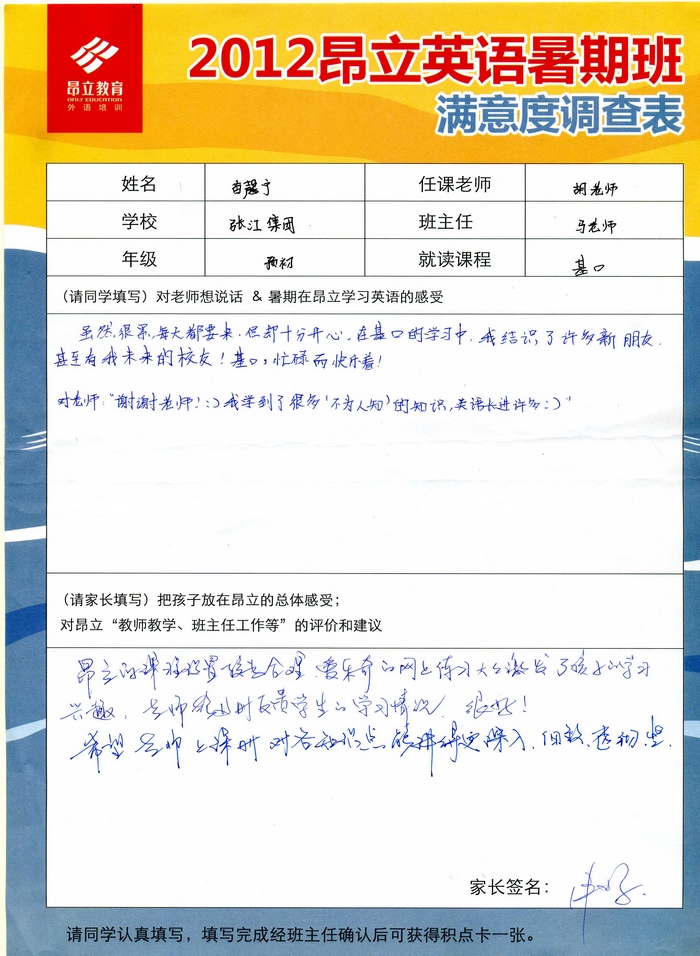 昂立教育
ONLY EDUCATION
外语培训
2012昂立英语暑期班
满意度调查表
姓名 馨宁 任课老师 胡老师
学校 张江集团 班主任 马老师
年级 预初 就读课程 基口
(请同学填写)对老师想说话 & 暑期在昂立学习英语的感受
虽然很累,每天都要来,但却十分开心,在基口的学习中,我结识了许多新朋友,
甚至有我未来的校友!基口,忙碌而快乐着!
对老师:“谢谢老师!:)我学到了很多‘不为人知’的知识,英语长进许多:)”
(请家长填写)把孩子放在昂立的总体感受;
对昂立“教师教学、班主任工作等”的评价和建议
昂立的课程设置较为合理,爱乐奇的网上练习大大激发了孩子的学习
兴趣,老师能及时反馈学生的学习情况,很好!
希望老师上课时对各知识点能讲得更深入、细致、透彻
家长签名:
请同学认真填写,填写完成经班主任确认后可获得积点卡一张。